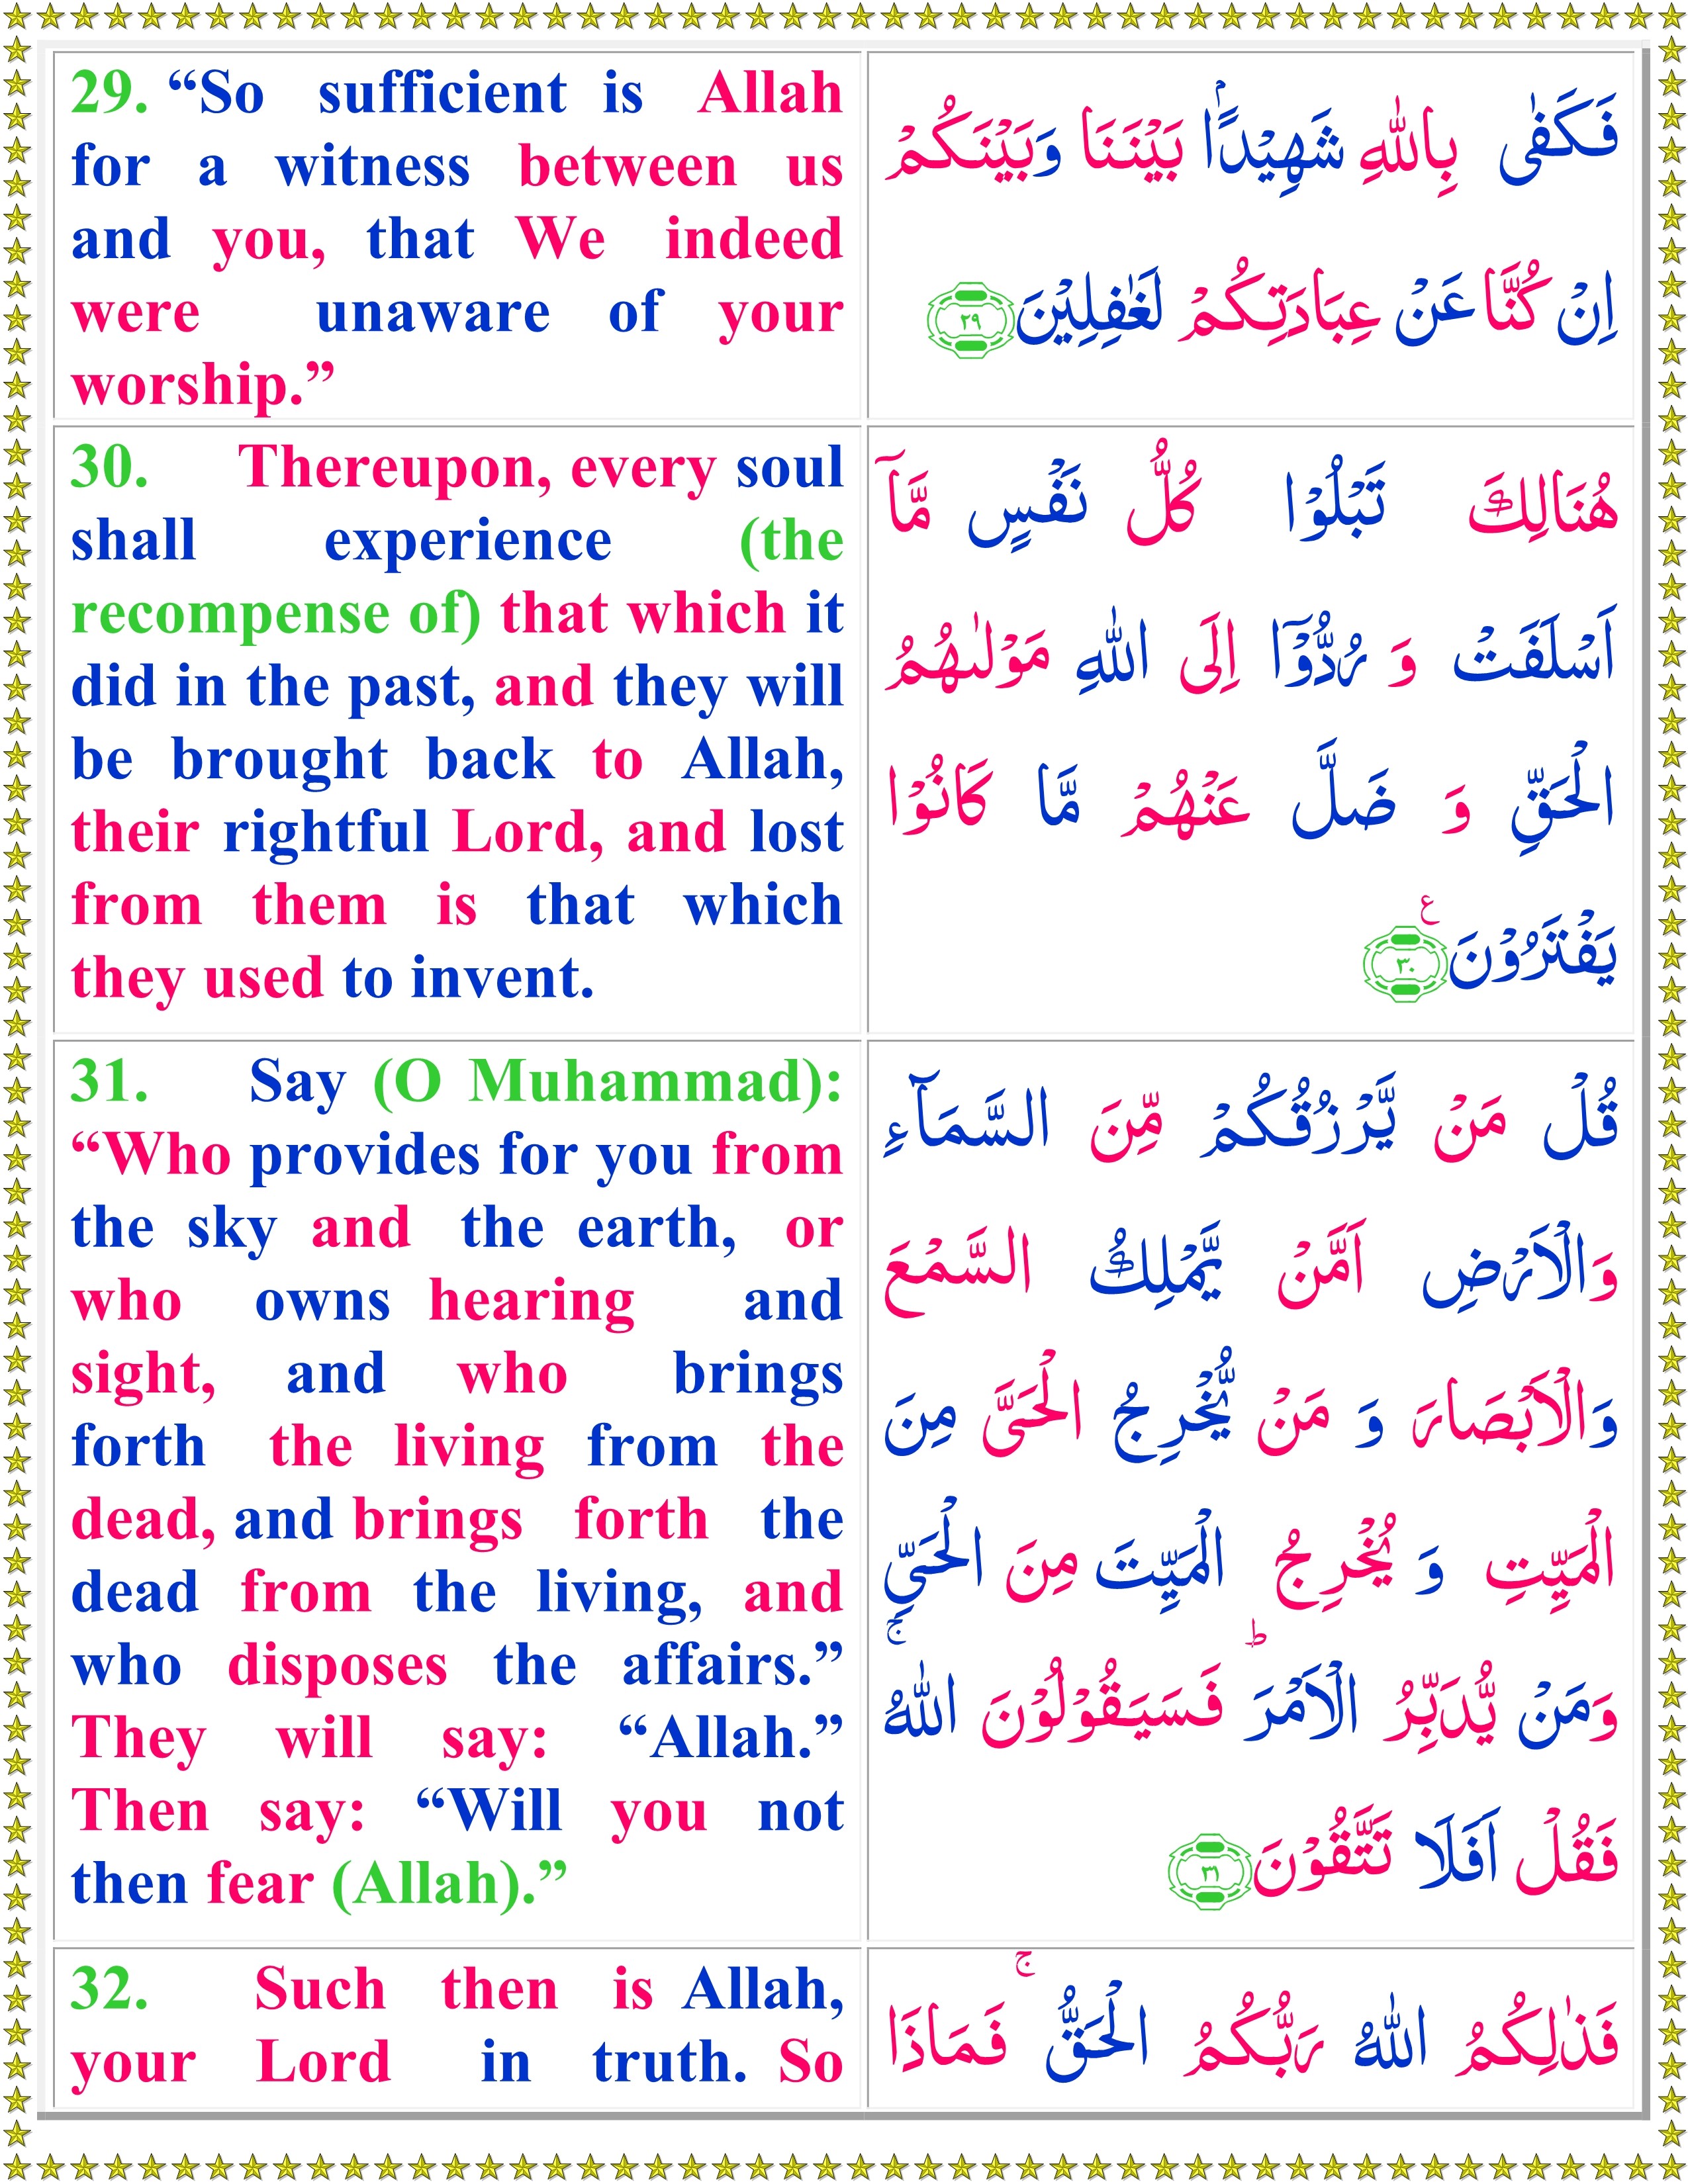 29. “So sufficient is Allah
for a witness between us
and you, that We indeed
were unaware of your
worship.”
فَكَفٰى بِاللّٰهِ شَهِيْدًۢا بَيْنَنَا وَبَيْنَكُمْ
اِنْ كُنَّا عَنْ عِبَادَتِكُمْ لَغٰفِلِيْنَ ﴿۲۹﴾
30. Thereupon, every soul
shall experience (the
recompense of) that which it
did in the past, and they will
be brought back to Allah,
their rightful Lord, and lost
from them is that which
they used to invent.
هُنَالِكَ تَبْلُوْا كُلُّ نَفْسٍ مَّاۤ
اَسْلَفَتْ وَ رُدُّوْۤا اِلَى اللّٰهِ مَوْلٰٮهُمُ
الْحَقِّ وَ ضَلَّ عَنْهُمْ مَّا كَانُوْا
يَفْتَرُوْنَ ﴿۳۰﴾ ع
31. Say (O Muhammad):
“Who provides for you from
the sky and the earth, or
who owns hearing and
sight, and who brings
forth the living from the
dead, and brings forth the
dead from the living, and
who disposes the affairs.”
They will say: “Allah.”
Then say: “Will you not
then fear (Allah).”
قُلْ مَنْ يَّرْزُقُكُمْ مِّنَ السَّمَآءِ
وَالْاَرْضِ اَمَّنْ يَّمْلِكُ السَّمْعَ
وَالْاَبْصَارَ وَ مَنْ يُّخْرِجُ الْحَىَّ مِنَ
الْمَيِّتِ وَ يُخْرِجُ الْمَيِّتَ مِنَ الْحَىِّ
وَمَنْ يُّدَبِّرُ الْاَمْرَ ؕ فَسَيَقُوْلُوْنَ اللّٰهُ ۚ
فَقُلْ اَفَلَا تَتَّقُوْنَ ﴿۳۱﴾
32. Such then is Allah,
your Lord in truth. So
فَذٰلِكُمُ اللّٰهُ رَبُّكُمُ الْحَقُّ ۚ فَمَاذَا